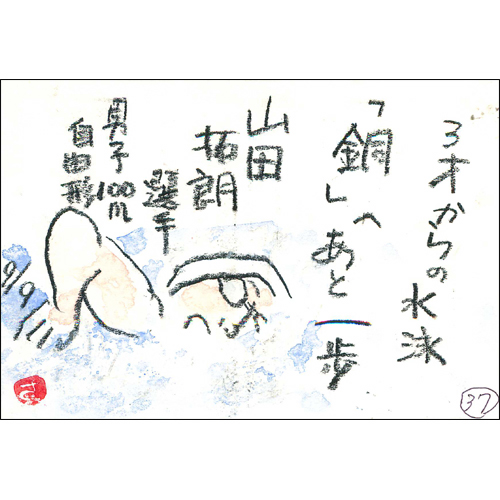 3才からの水泳
「銅」へあと一歩
山田
拓朗
選手
男子100m
自由形
9/9
'11
37